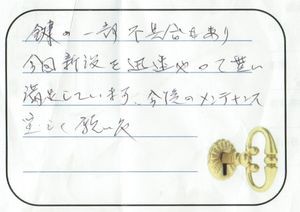 鍵の一部不具合もあり
今回新設を迅速やって貰い
満足しています。今後のメンテナンス
宜しく願い